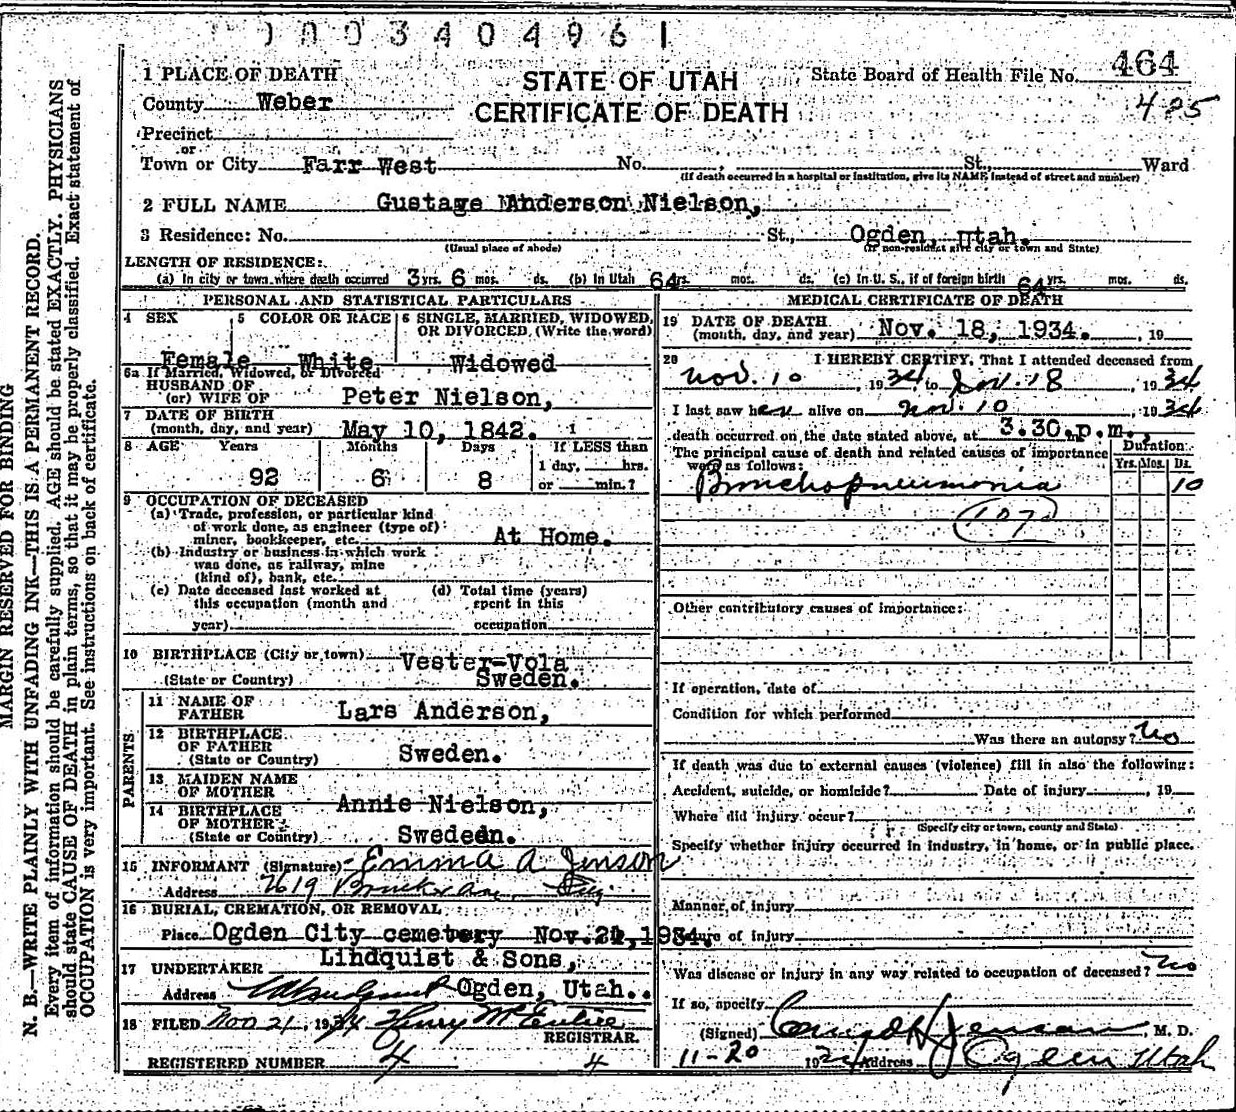 0003404961
1 PLACE OF DEATH
STATE OF UTAH
CERTIFICATE OF DEATH
State Board of Health File No. 464
425
County Weber
Precinct
or
Town or City Farr West No. , St., Ward
(If death occurred in a hospital or institution, give its NAME instead of street and number)
2 FULL NAME Gustage Anderson Nielson,
3 Residence: No. St., Ogden, Utah.
(Usual place of abode) (If non-resident give city or town and State)
LENGTH OF RESIDENCE:
(a) In city or town where death occurred 3 yrs. 6 mos. ds. (b) In Utah 64 yrs. mos. ds. (c) In U. S., if of foreign birth 64 yrs. mos. ds.
PERSONAL AND STATISTICAL PARTICULARS
4 SEX 5 COLOR OR RACE 6 SINGLE, MARRIED, WIDOWED, OR DIVORCED (Write the word)
Female White Widowed
6a If Married, Widowed, or Divorced
HUSBAND OF
(or) WIFE OF Peter Nielson,
7 DATE OF BIRTH
(month, day, and year) May 10, 1842.
8 AGE Years Months Days If LESS than
1 day, hrs.
92 6 8 or min.?
9 OCCUPATION OF DECEASED
(a) Trade, profession, or particular kind
of work done, as engineer (type of)
miner, bookkeeper, etc. At Home.
(b) Industry or business in which work
was done, as railway, mine
(kind of), bank, etc.
(c) Date deceased last worked at
this occupation (month and
year)
(d) Total time (years)
spent in this
occupation
10 BIRTHPLACE (City or town) Vester-Vola
(State or Country) Sweden.
PARENTS
11 NAME OF
FATHER Lars Anderson,
12 BIRTHPLACE
OF FATHER Sweden.
(State or Country)
13 MAIDEN NAME
OF MOTHER Annie Nielson,
14 BIRTHPLACE
OF MOTHER
(State or Country) Sweden.
15 INFORMANT (Signature) Emma A Jenson
Address 2619
16 BURIAL, CREMATION, OR REMOVAL
Place Ogden City cemetery Nov. 21, 1934.
17 UNDERTAKER Lindquist & Sons,
Address Ogden, Utah.
18 FILED Nov 21, 1934 Henry
REGISTRAR.
REGISTERED NUMBER 4 4
MEDICAL CERTIFICATE OF DEATH
19 DATE OF DEATH
(month, day, and year) Nov. 18, 1934. , 19
20 I HEREBY CERTIFY, That I attended deceased from
Nov. 10 , 1934 to Nov. 18 , 1934
I last saw her alive on Nov. 10 , 1934
death occurred on the date stated above, at 3.30 p.m.
The principal cause of death and related causes of importance
were as follows:
Duration
Yrs. Mos. Ds.
Bronchopneumonia 10
Other contributory causes of importance:
If operation, date of
Condition for which performed
Was there an autopsy? No
If death was due to external causes (violence) fill in also the following:
Accident, suicide, or homicide? Date of injury , 19
Where did injury occur?
(Specify city or town, county and State)
Specify whether injury occurred in industry, in home, or in public place.
Manner of injury
Nature of injury
Was disease or injury in any way related to occupation of deceased? No
If so, specify
(Signed) Conrad H Jensen M. D.
11-20 1934 Address Ogden Utah
MARGIN RESERVED FOR BINDING
N. B.—WRITE PLAINLY WITH UNFADING INK—THIS IS A PERMANENT RECORD.
Every item of information should be carefully supplied. AGE should be stated EXACTLY. PHYSICIANS
should state CAUSE OF DEATH in plain terms, so that it may be properly classified. Exact statement of
OCCUPATION is very important. See instructions on back of certificate.